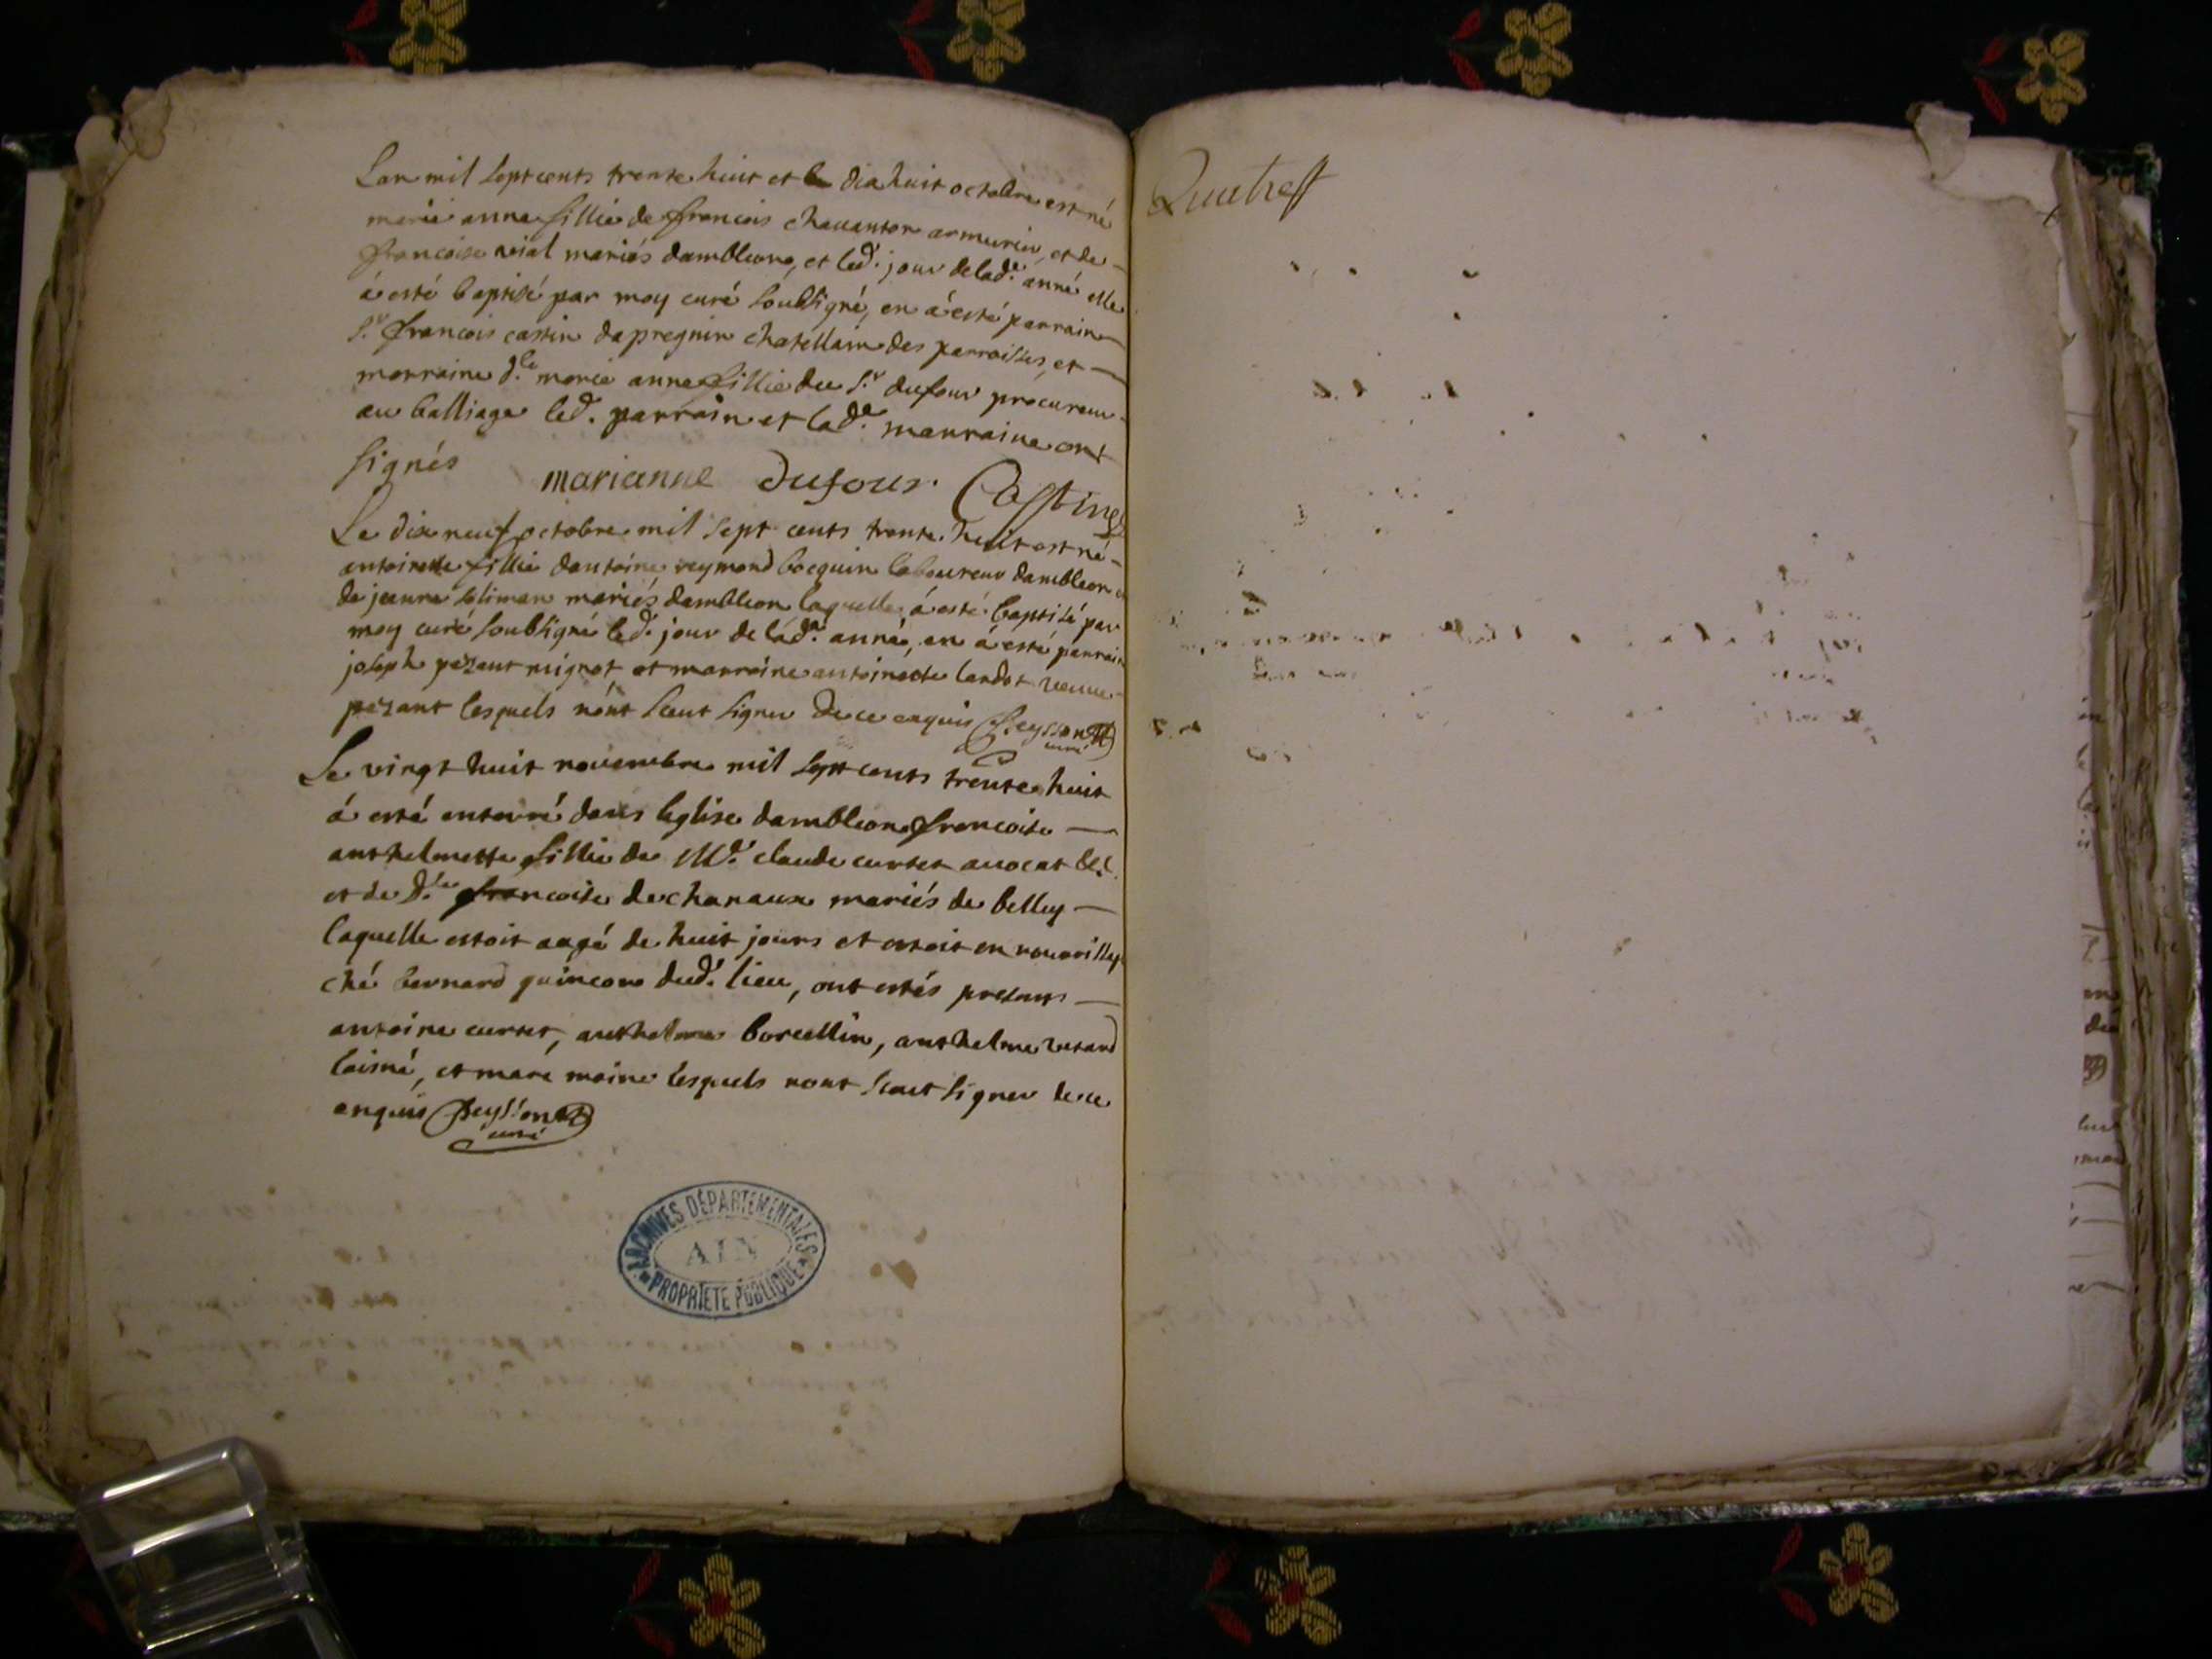 Lan mil sept cents trente huit et le dix huit octobre est né
marie anne fillie de francois chavanton armurier, et de
francoise reial mariés dambleon, et led. jour de lad.e anné elle
á esté baptisé par moy curé soubsigné, en á esté parrain
s.r francois castin de pregnin chatellain des parroisses, et
marraine d.lle marie anne fillie du s.r dufour procureur
au balliage led. parrain et lad.e marraine ont
signés marianne Dufour. Castin
Le dix neuf octobre mil sept cents trente huit est né
antoinette fillie dantoine reymond bocquin laboureur dambleon et
de jeanne soliman mariés dambleon laquelle á esté baptisé par
moy curé soubsigné led. jour de lad.e anné, en á esté parrain
joseph pezant mignot et marraine antoinette lardet veuve
pezant lesquels nónt sceut signer de ce enquis Peysson
curé
Le vingt huit novembre mil sept cents trente huit
á esté enterré dans leglise dambleon francoise
anthelmette fillie de M.e claude curtet avocat
et de d.lle francoise de chanaux mariés de belley
laquelle estoit aagé de huit jours et estoit en nourrissage
ché bernard quincon dud. lieu, ont estés presents
antoine curtet, anthelme borcellin, anthelme
laisné, et marc moine lesquels nont sceut signer de ce
enquis Peysson
curé
ARCHIVES DÉPARTEMENTALES
AIN
PROPRIÉTÉ PUBLIQUE